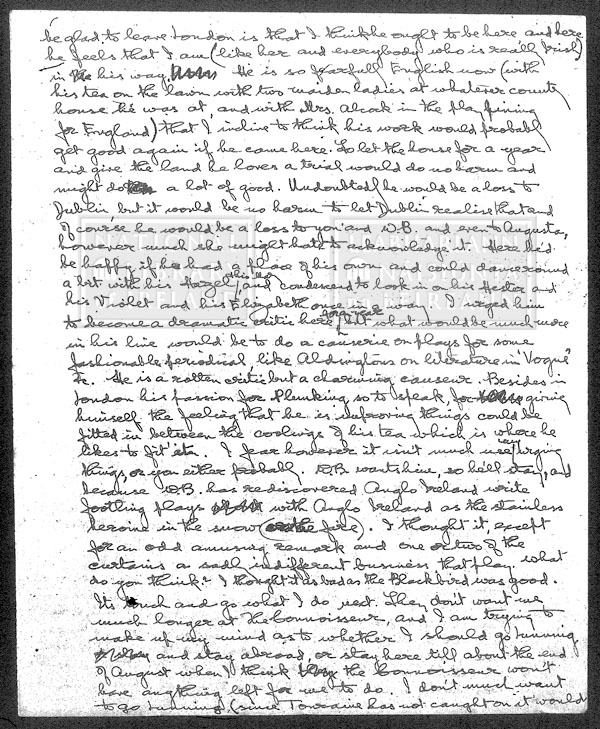 be glad to leave London is that I think he ought to be here and here
he feels that I am (like her and everybody who is reall Irish)
in his way. He is so fearfull English now (with
his tea on the lawn with two maiden ladies at whatever county
house he was at, and with Mrs. Alcock in the play pining
for England) that I incline to think his work would probabl
get good again if he came here. To let the house for a year
and give the land he loves a trial would do no harm and
might do a lot of good. Undoubtedl he would be a loss to
Dublin, but it would be no harm to let Dublin realise that and
of course he would be a loss to you and W.B. and even to Augusta,
however much she might hate to acknowledge it. Here he'd
be happy if he had a place of his own and could dance round
a bit with his Hazel, and condescend to look in on his Hester and
his Violet and his Elizabeth once in a way. I urged him
to become a dramatic critic here for a year, but what would be much more
in his line would be to do a causerie on plays for some
fashionable periodical, like Aldington's on literature in "Vogue"
&c. He is a rotten critic but a charming causeur. Besides in
London his passion for plunking, so to speak, for giving
himself the feeling that he is improving things could be
fitted in between the coolings of his tea which is where he
likes to fit it in. I fear however it isn't much use my urging
things, or you either probabl. W.B. wants him, so he'll stay, and
because W.B. has rediscovered Anglo Ireland write
footling plays with Anglo Ireland as the stainless
heroine in the snow. I thought it, except
for an odd amusing remark and one or two of the
curtains a sadl indifferent business that play. What
do you think? I thought it as bad as the Blackbird was good.
Its touch and go what I do next. They don't want me
much longer at the Connoisseur, and I am trying to
make up my mind as to whether I should go running
and stay abroad, or stay here till about the end
of August when I think the Connoisseur won't
have anything left for me to do. I don't much want
to go running (since Touraine has not caught on it would
NATIONAL LIBRARY OF IRELAND